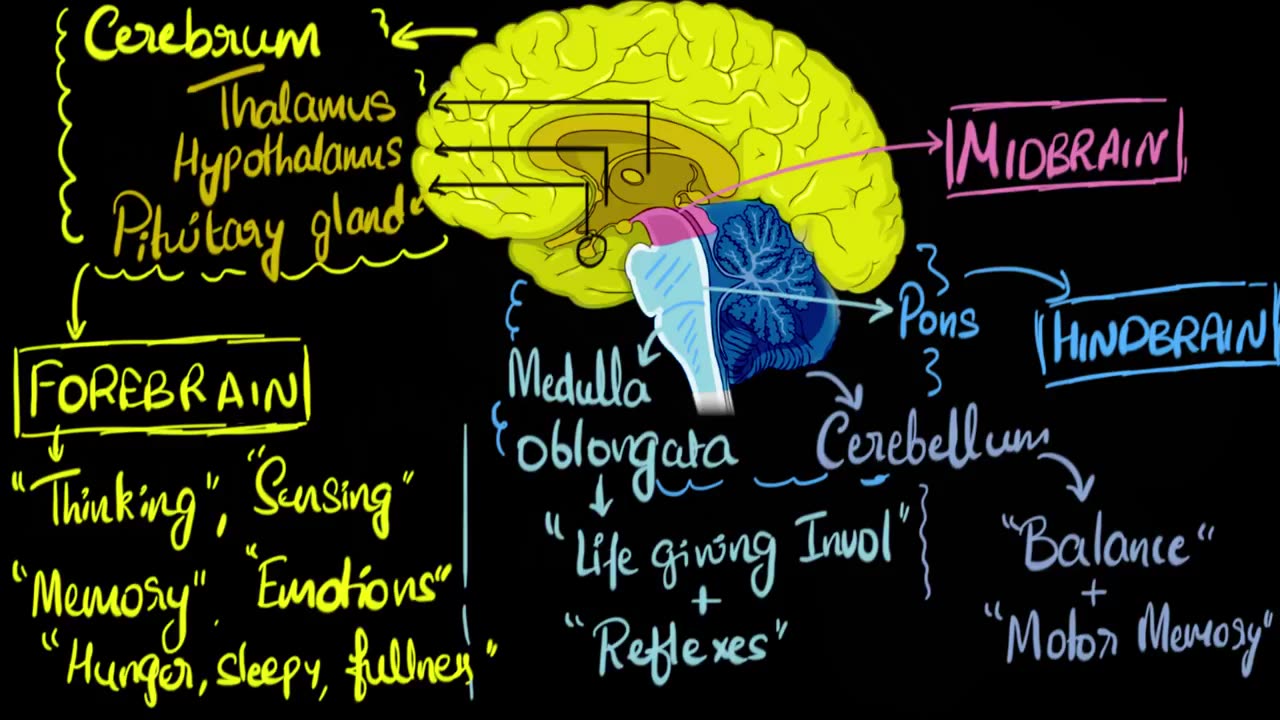 Cerebrum
Thalamus
Hypothalamus
Pituitary gland
FOREBRAIN
"Thinking", "Sensing"
"Memory" "Emotions"
"Hunger, sleepy, fullness"
MIDBRAIN
Pons
HINDBRAIN
Medulla
oblongata
"Life giving Invol"
+
"Reflexes"
Cerebellum
"Balance"
+
"Motor Memory"